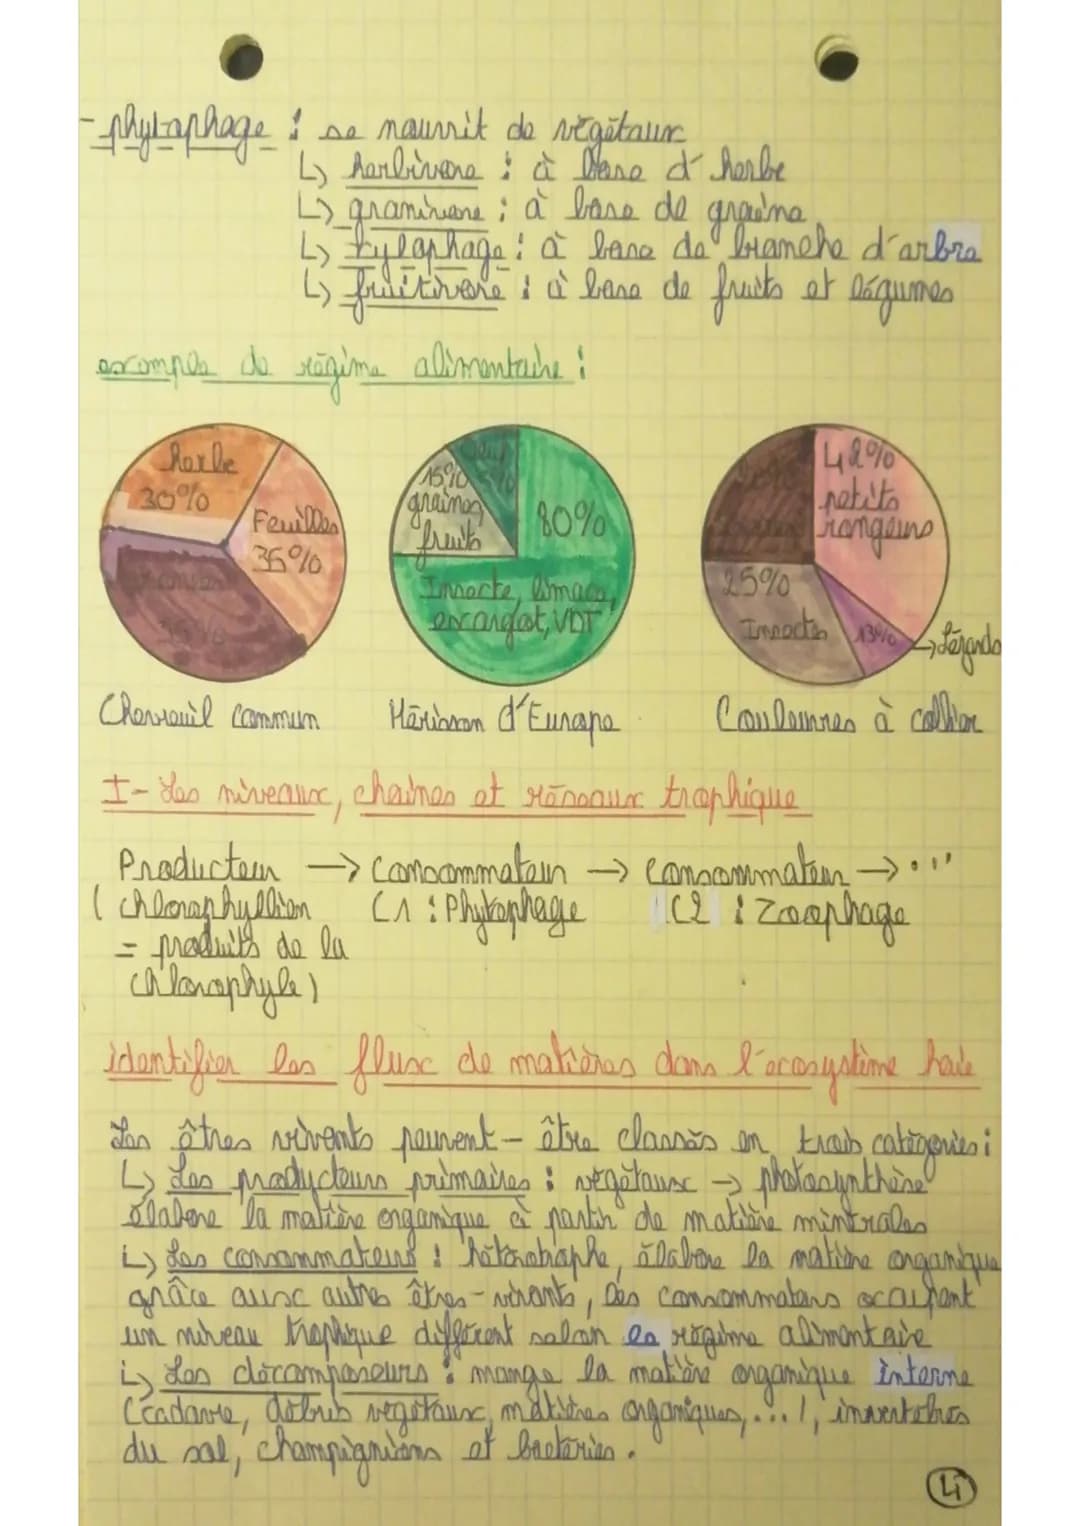 - phytophage : se nourrit de végétaux
↳ herbivore : à base d'herbe
↳ granivore : à base de graine
↳ xylophage : à base de branche d'arbre
↳ fruitivore : à base de fruits et légumes
exemple de régime alimentaire :
herbe
30%
Feuilles
35%
35%
Chevreuil commun
15%
graines
fruits
80%
Insecte, limace,
escargot, VDT
Hérisson d'Europe
42%
petits
rongeurs
25%
Insectes
13%
→ Lézards
Couleuvres à collier
I- Les niveaux, chaines et réseaux trophique
Producteur → Consommateur → Consommateur → ...
( chlorophyllien C1 : Phytophage C2 : Zoophage
= produits de la
chlorophyle)
identifier les flux de matières dans l'ecosystème haie
Les êtres vivants peuvent-être classés en trois catégories :
↳ Les producteurs primaires : végétaux → photosynthèse
élabore la matière organique à partir de matière minérales
↳ Les consommateurs : hétérotrophe, élabore la matière organique
grâce aux autres êtres-vivants, les consommateurs occupent
un niveau trophique différent selon le régime alimentaire
↳ Les décomposeurs : mange la matière organique interne
(cadavre, débris vegetaux, matières organiques, ...), invertébrés
du sol, champignions et bactéries.
4